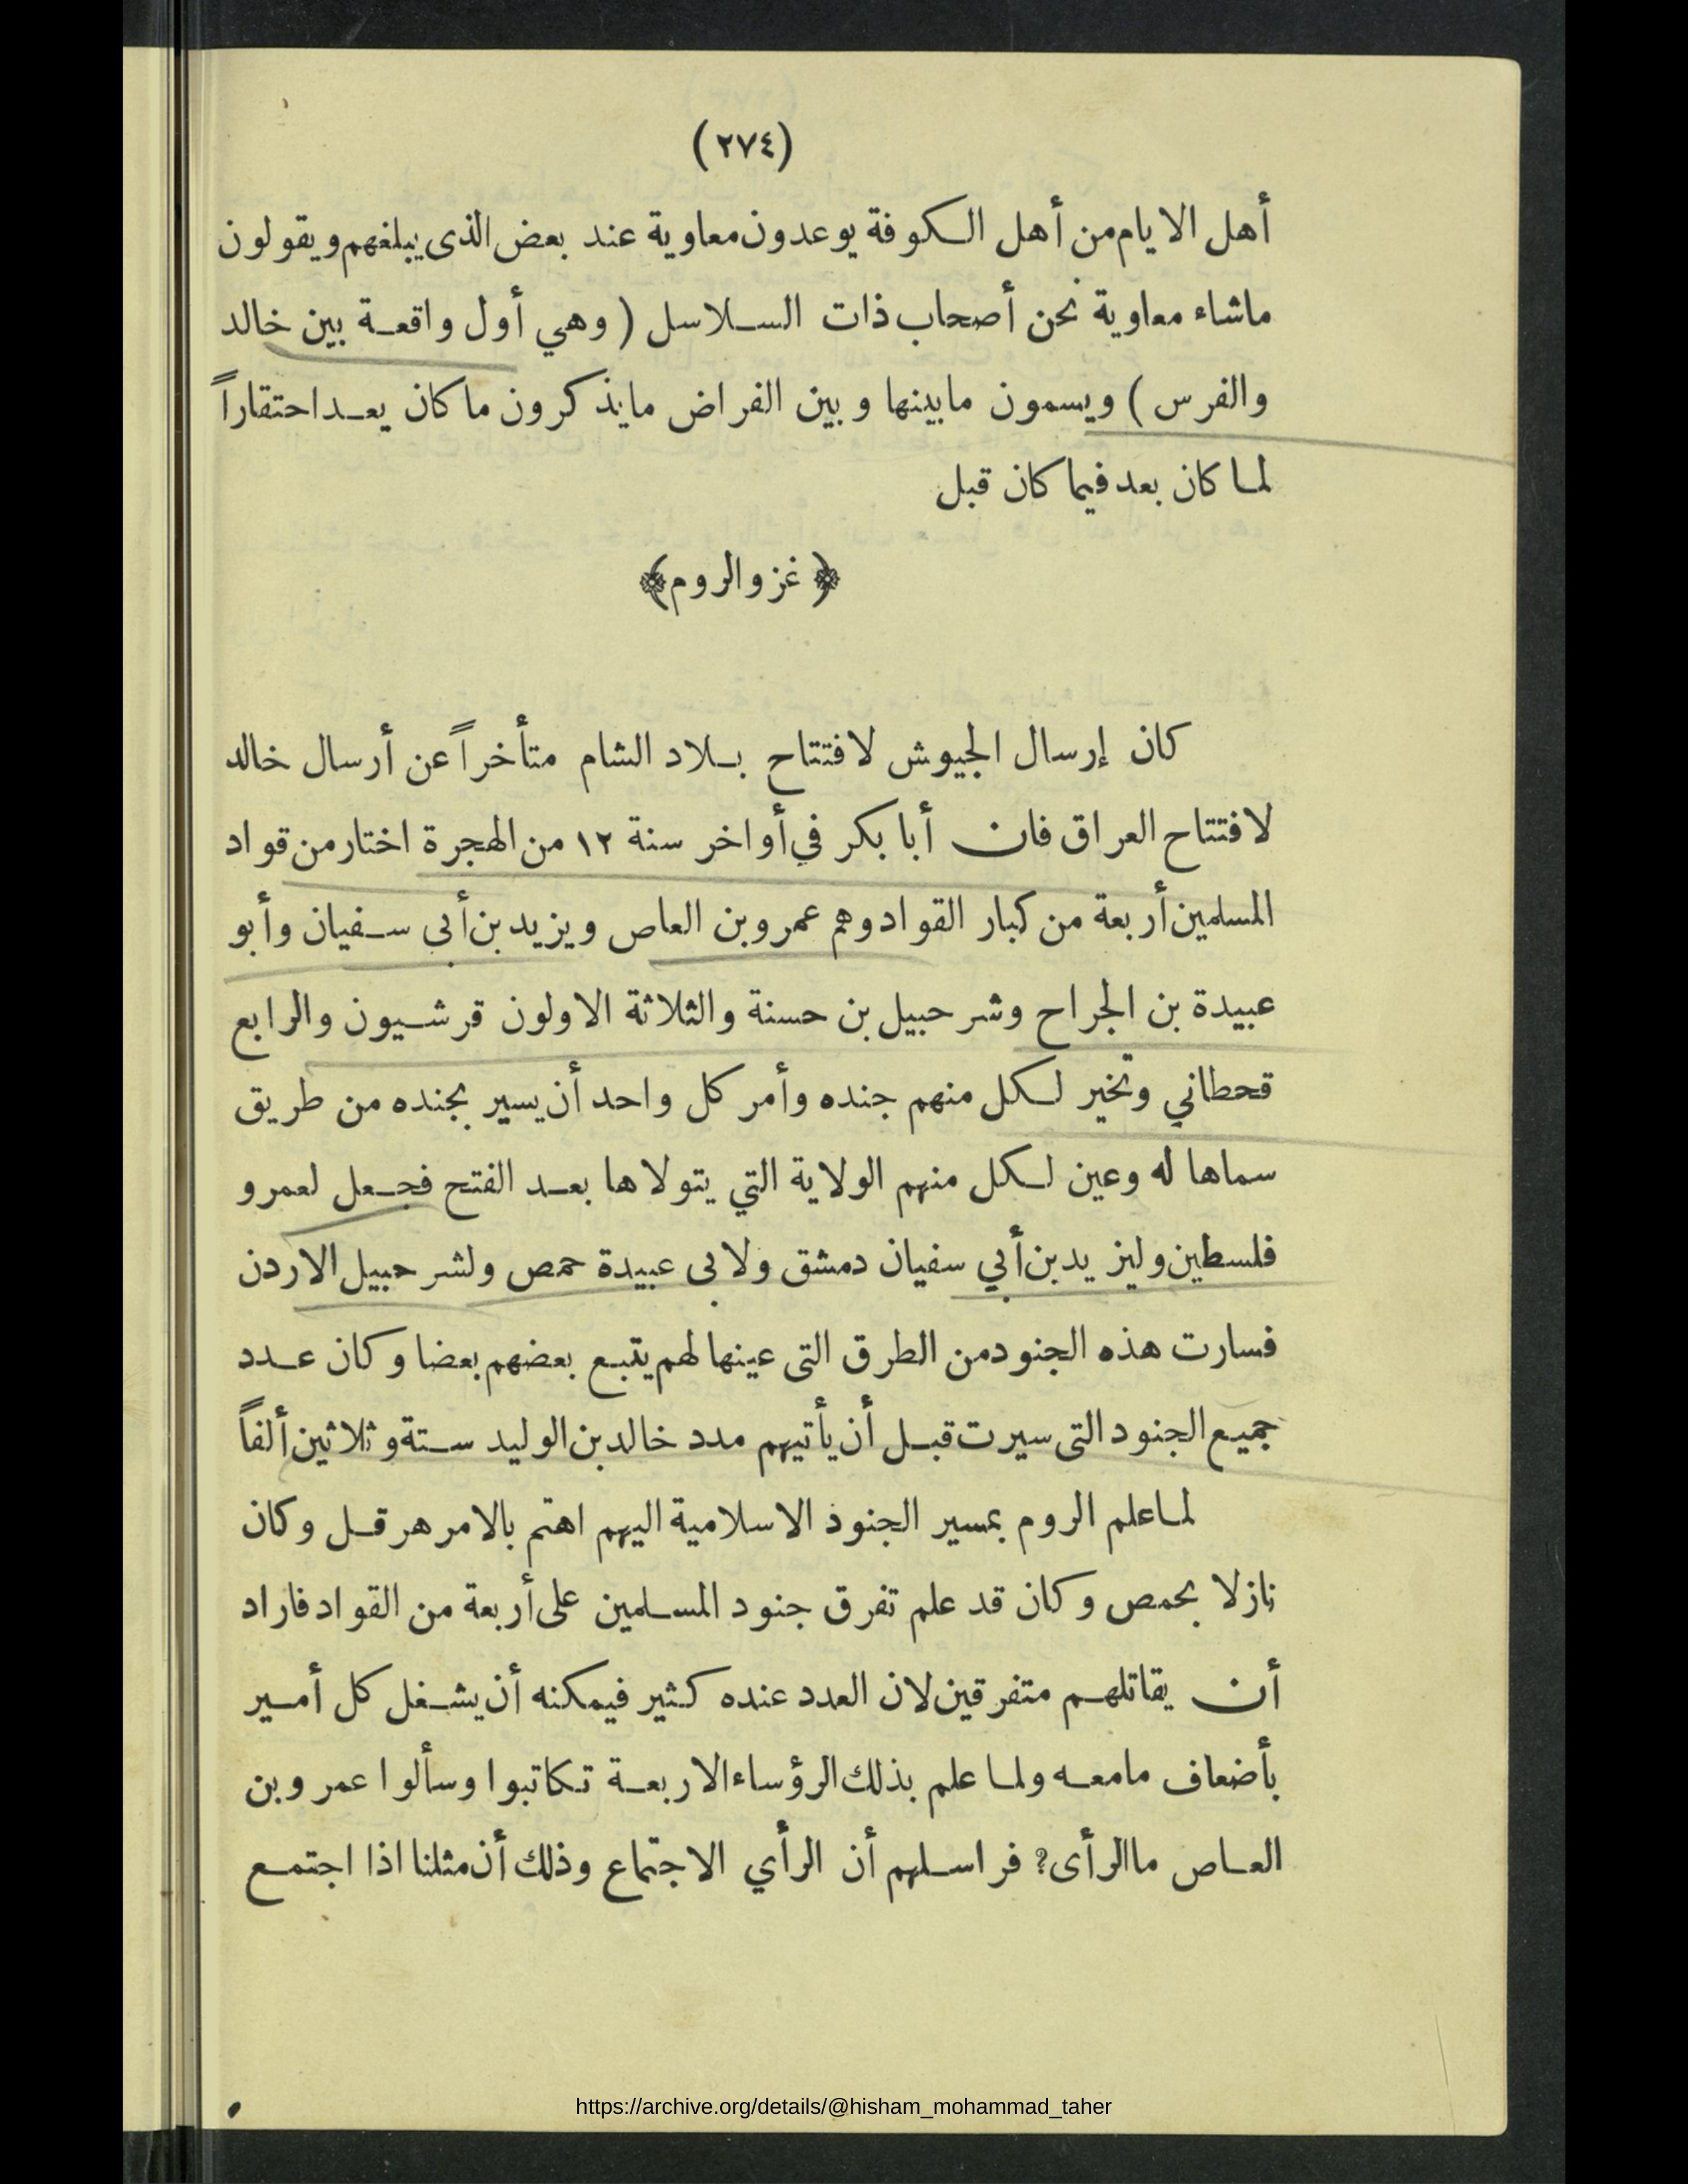 (٢٧٤)
أهل الايام من أهل الكوفة يوعدون معاوية عند بعض الذى يبلغهم ويقولون
ماشاء معاوية نحن أصحاب ذات السلاسل ( وهي أول واقعة بين خالد
والفرس ) ويسمون مابينها وبين الفراض مايذكرون ماكان يعد احتقاراً
لما كان بعد فيما كان قبل
﴿ غزو الروم ﴾
كان إرسال الجيوش لافتتاح بلاد الشام متأخراً عن أرسال خالد
لافتتاح العراق فان أبا بكر في أواخر سنة ١٢ من الهجرة اختار من قواد
المسلمين أربعة من كبار القواد وهم عمرو بن العاص ويزيد بن أبى سفيان وأبو
عبيدة بن الجراح وشرحبيل بن حسنة والثلاثة الاولون قرشيون والرابع
قحطاني وتخير لكل منهم جنده وأمر كل واحد أن يسير بجنده من طريق
سماها له وعين لكل منهم الولاية التي يتولاها بعد الفتح فجعل لعمرو
فلسطين وليزيد بن أبي سفيان دمشق ولابى عبيدة حمص ولشرحبيل الاردن
فسارت هذه الجنود من الطرق التى عينها لهم يتبع بعضهم بعضا وكان عدد
جميع الجنود التى سيرت قبل أن يأتيهم مدد خالد بن الوليد ستة وثلاثين ألفاً
لما علم الروم بمسير الجنود الاسلامية اليهم اهتم بالامر هرقل وكان
نازلا بحمص وكان قد علم تفرق جنود المسلمين على أربعة من القواد فاراد
أن يقاتلهم متفرقين لان العدد عنده كثير فيمكنه أن يشغل كل أمير
بأضعاف مامعه ولما علم بذلك الرؤساء الاربعة تكاتبوا وسألوا عمرو بن
العاص ماالرأى؟ فراسلهم أن الرأي الاجتماع وذلك أن مثلنا اذا اجتمع
https://archive.org/details/@hisham_mohammad_taher